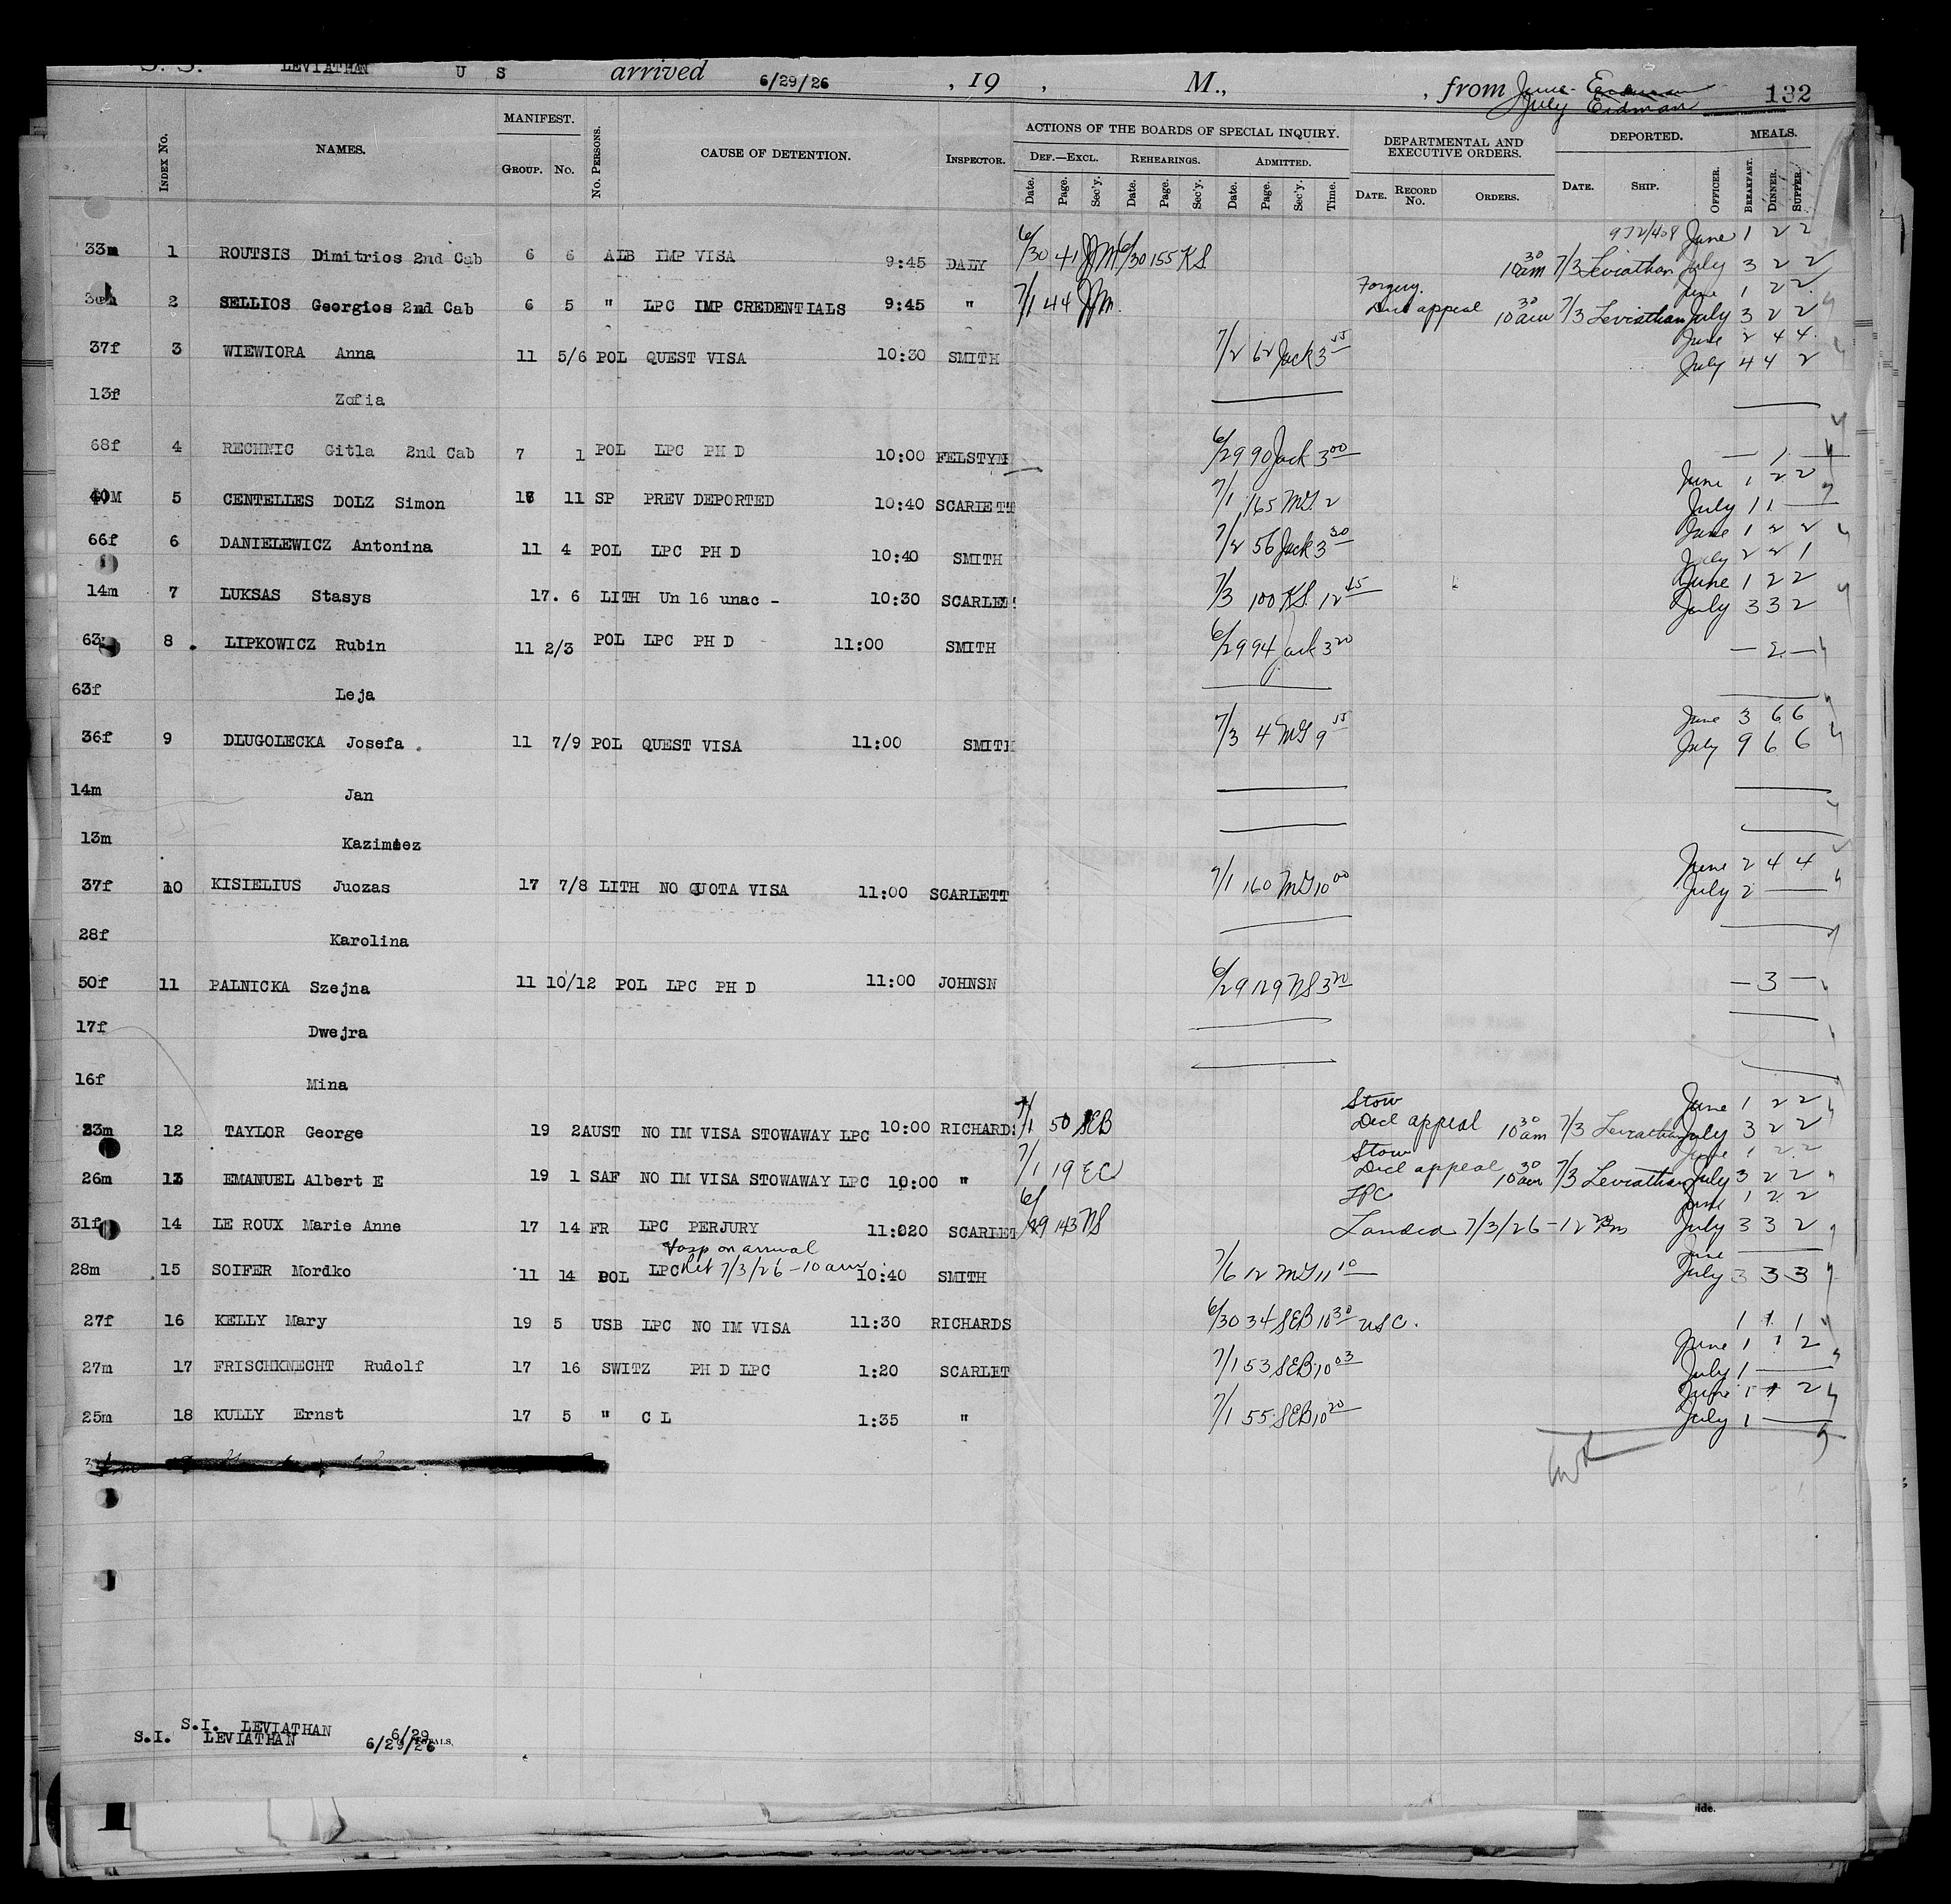 S. S. LEVIATHAN U S arrived 6/29/26 , 19 , M., , from June - Erdman 132
July Erdman
INDEX No. NAMES. MANIFEST. GROUP. No. No. PERSONS. CAUSE OF DETENTION. INSPECTOR. ACTIONS OF THE BOARDS OF SPECIAL INQUIRY. DEF.—EXCL. REHEARINGS. ADMITTED. DEPARTMENTAL AND EXECUTIVE ORDERS. DEPORTED. MEALS.
Date. Page. Sec'y. Date. Page. Sec'y. Date. Page. Sec'y. Time. DATE. RECORD No. ORDERS. DATE. SHIP. OFFICER. BREAKFAST. DINNER. SUPPER.
972/408 June 1 2 2
33m 1 ROUTSIS Dimitrios 2nd Cab 6 6 ALB IMP VISA 9:45 DALY 6/30 41 JJM 6/30 155 KS 10 30 am 7/3 Leviathan July 3 2 2
Forgery. June 1 2 2
2 SELLIOS Georgios 2nd Cab 6 5 " LPC IMP CREDENTIALS 9:45 " 7/1 44 JJM Decl appeal 10 30 am 7/3 Leviathan July 3 2 2
June 2 4 4
37f 3 WIEWIORA Anna 11 5/6 POL QUEST VISA 10:30 SMITH 7/2 62 Jack 3 55 July 4 4 2
13f Zofia
68f 4 RECHNIC Gitla 2nd Cab 7 1 POL LPC PH D 10:00 FELSTYN 6/29 90 Jack 3 00 — 1 —
June 1 2 2
40M 5 CENTELLES DOLZ Simon 11 SP PREV DEPORTED 10:40 SCARLETT 7/1 165 MG 2 July 1 1 —
June 1 2 2
66f 6 DANIELEWICZ Antonina 11 4 POL LPC PH D 10:40 SMITH 7/2 56 Jack 3 30 July 2 2 1
June 1 2 2
14m 7 LUKSAS Stasys 17. 6 LITH Un 16 unac - 10:30 SCARLET 7/3 100 KS 12 45 July 3 3 2
63 8 . LIPKOWICZ Rubin 11 2/3 POL LPC PH D 11:00 SMITH 6/29 94 Jack 3 20 — 2 —
63f Leja
June 3 6 6
36f 9 DLUGOLECKA Josefa . 11 7/9 POL QUEST VISA 11:00 SMITH 7/3 4 MG 9 55 July 9 6 6
14m Jan
13m Kazimiez
June 2 4 4
37f 10 KISIELIUS Juozas 17 7/8 LITH NO QUOTA VISA 11:00 SCARLETT 7/1 160 MG 10 00 July 2 —
28f Karolina
50f 11 PALNICKA Szejna 11 10/12 POL LPC PH D 11:00 JOHNSN 6/29 129 NS 3 20 — 3 —
17f Dwejra
16f Mina
Stow June 1 2 2
23m 12 TAYLOR George 19 2 AUST NO IM VISA STOWAWAY LPC 10:00 RICHARDS 7/1 50 SEB Decl appeal 10 30 am 7/3 Leviathan July 3 2 2
Stow June 1 2 2
26m 13 EMANUEL Albert E 19 1 SAF NO IM VISA STOWAWAY LPC 10:00 " 7/1 19 EC Decl appeal 10 30 am 7/3 Leviathan July 3 2 2
LPC June 1 2 2
31f 14 LE ROUX Marie Anne 17 14 FR LPC PERJURY SCARLET 6/29 143 NS Landed 7/3/26 - 12 July 3 3 2
Hosp on arrival June —
28m 15 SOIFER Mordko 11 14 POL LPC Ret 7/3/26 - 10 am 10:40 SMITH 7/6 12 MG 11 10 July 3 3 3
27f 16 KELLY Mary 19 5 USB LPC NO IM VISA 11:30 RICHARDS 6/30 34 SEB 10 30 USC. 1 1 1
June 1 1 2
27m 17 FRISCHKNECHT Rudolf 17 16 SWITZ PH D LPC 1:20 SCARLET 7/1 53 SEB 10 03 July 1 —
June 1 1 2
25m 18 KULLY Ernst 17 5 " C L 1:35 " 7/1 55 SEB 10 20 July 1 —
S.I. LEVIATHAN 6/29
S.I. LEVIATHAN 6/29/26